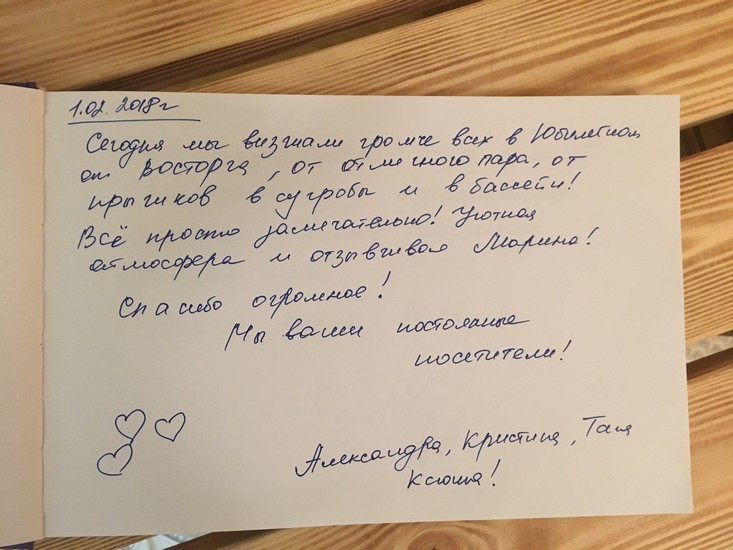 1.02.2018г
Сегодня мы визжали громче всех в Юбилейном
от восторга, от отличного пара, от
прыжков в сугробы и в бассейн!
Всё просто замечательно! Уютная
атмосфера и отзывчивая Марина!
Спасибо огромное!
Мы ваши постоянные
посетители!
Александра, Кристина, Таня
Ксюша!